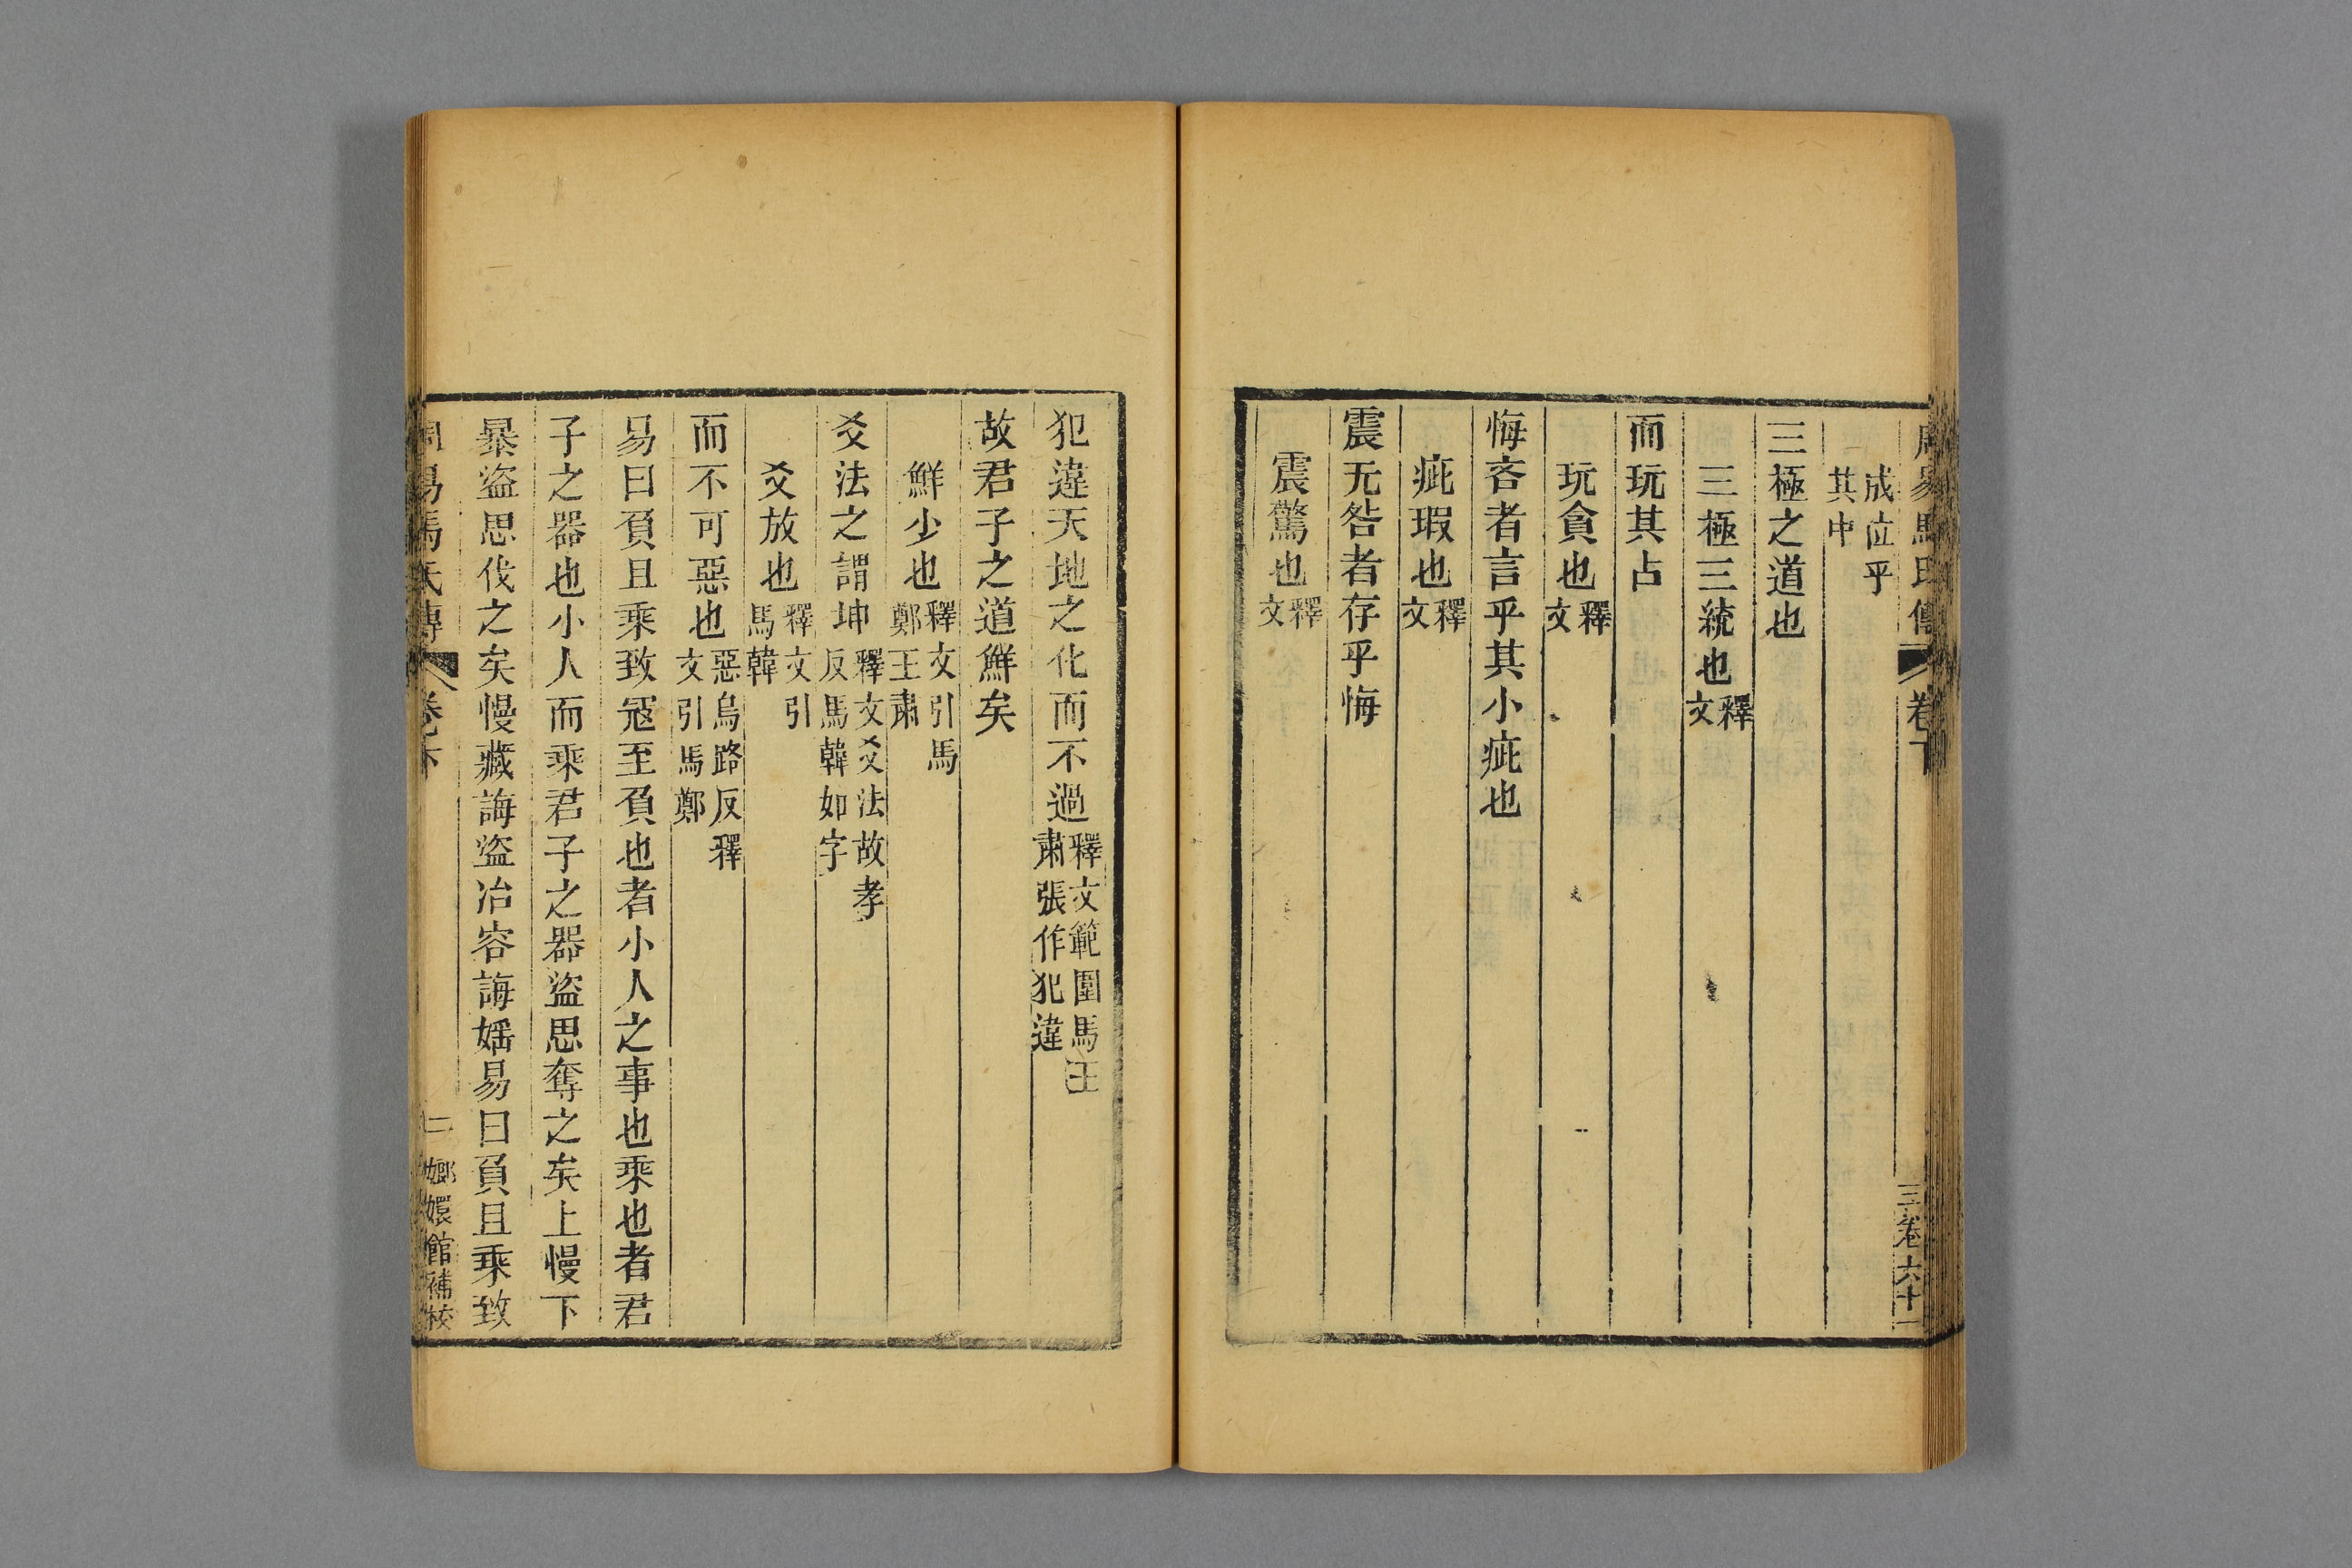 周易馬氏傳 卷下 三 卷六十一
成位乎
其中
三極之道也
三極三統也釋
文
而玩其占
玩貪也釋
文
悔吝者言乎其小疵也
疵瑕也釋
文
震无咎者存乎悔
震驚也釋
文
犯違天地之化而不過釋文範圍馬王
肅張作犯違
故君子之道鮮矣
鮮少也釋文引馬
鄭王肅
爻法之謂坤釋文爻法故孝
反馬韓如字
爻放也釋文引
馬韓
而不可惡也惡烏路反釋
文引馬鄭
易曰負且乘致寇至負也者小人之事也乘也者君
子之器也小人而乘君子之器盜思奪之矣上慢下
暴盜思伐之矣慢藏誨盜冶容誨婬易曰負且乘致
周易馬氏傳 卷下 二 嫏嬛館補校